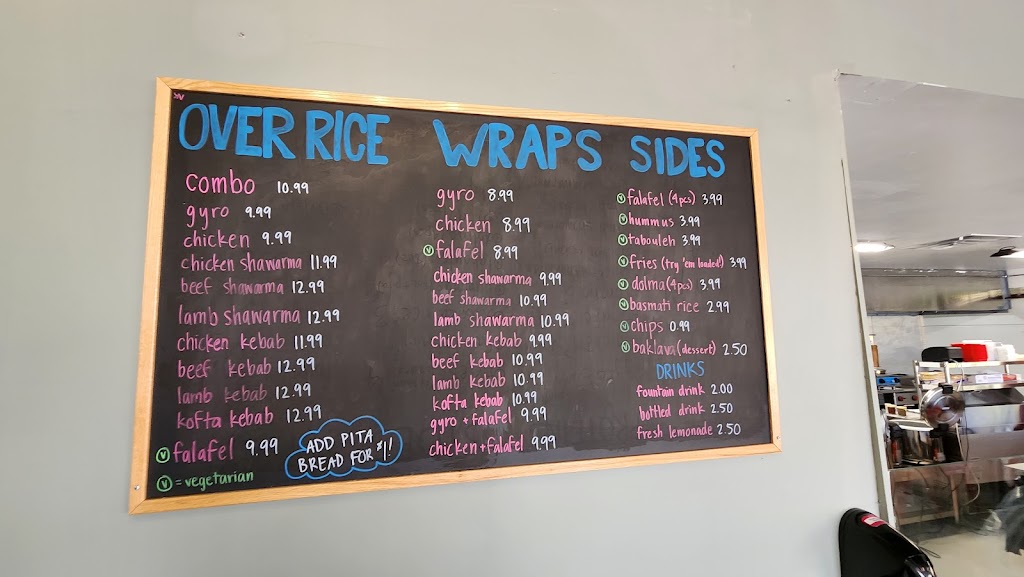 OVER RICE
combo 10.99
gyro 9.99
chicken 9.99
chicken shawarma 11.99
beef shawarma 12.99
lamb shawarma 12.99
chicken kebab 11.99
beef kebab 12.99
lamb kebab 12.99
kofta kebab 12.99
V falafel 9.99
V = vegetarian
ADD PITA
BREAD FOR $1!
WRAPS
gyro 8.99
chicken 8.99
V falafel 8.99
chicken shawarma 9.99
beef shawarma 10.99
lamb shawarma 10.99
chicken kebab 9.99
beef kebab 10.99
lamb kebab 10.99
kofta kebab 10.99
gyro + falafel 9.99
chicken + falafel 9.99
SIDES
V falafel (4pcs) 3.99
V hummus 3.99
V tabouleh 3.99
V fries (try 'em loaded!) 3.99
V dolma (4pcs) 3.99
V basmati rice 2.99
V chips 0.99
V baklava (dessert) 2.50
DRINKS
fountain drink 2.00
bottled drink 2.50
fresh lemonade 2.50